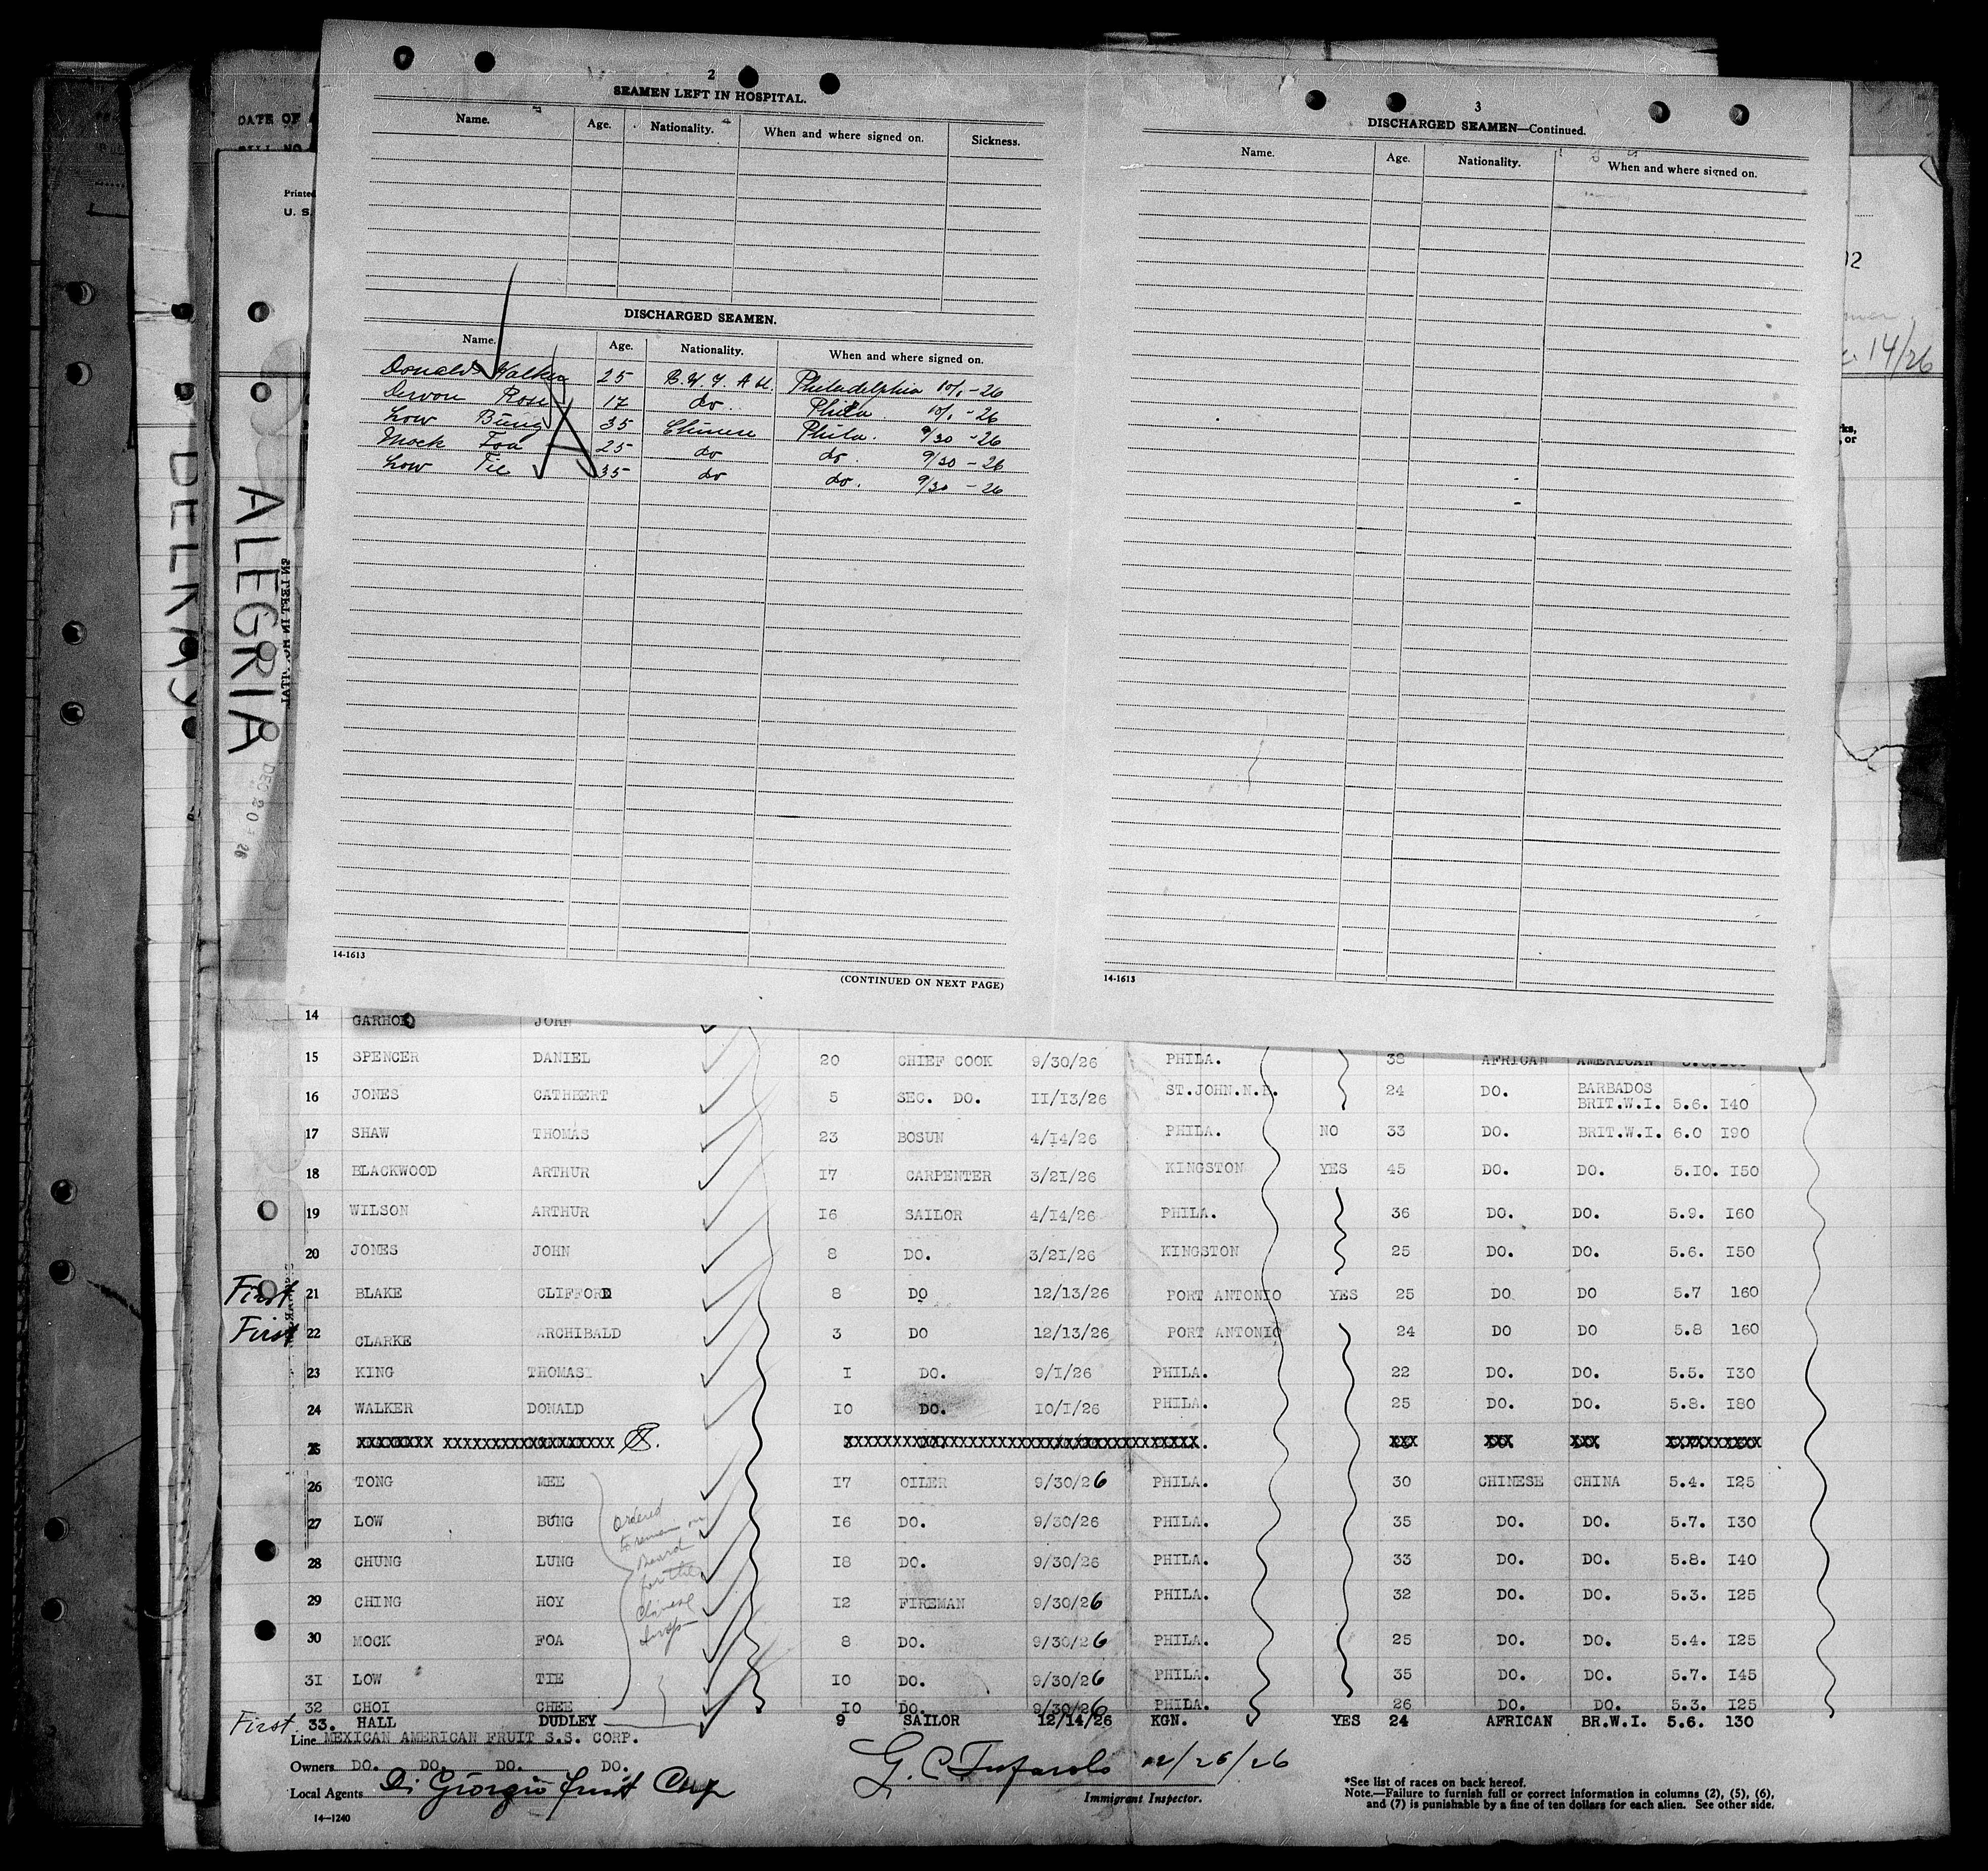 DATE OF
Printed
U. S.
DELRAY
ALEGRIA
DEC 20 26
2
SEAMEN LEFT IN HOSPITAL.
Name. Age. Nationality. When and where signed on. Sickness.
DISCHARGED SEAMEN.
Name. Age. Nationality. When and where signed on.
Donald Walker 25 Philadelphia 10/1-26
Rose 17 do. Phila 10/1-26
Low Bung 35 Chinese Phila. 9/30-26
Mock Foa 25 do do. 9/30-26
Low Tie 35 do do. 9/30-26
14-1613
(CONTINUED ON NEXT PAGE)
3
DISCHARGED SEAMEN—Continued.
Name. Age. Nationality. When and where signed on.
14-1613
14/26
14 JOHN
15 SPENCER DANIEL 20 CHIEF COOK 9/30/26 PHILA. 38 AFRICAN AMERICAN
16 JONES CATHBERT 5 SEC. DO. II/I3/26 ST.JOHN.N.B. 24 DO. BARBADOS
BRIT.W.I. 5.6. I40
17 SHAW THOMAS 23 BOSUN 4/I4/26 PHILA. NO 33 DO. BRIT.W.I. 6.0 I90
18 BLACKWOOD ARTHUR I7 CARPENTER 3/2I/26 KINGSTON YES 45 DO. DO. 5.I0. I50
19 WILSON ARTHUR I6 SAILOR 4/I4/26 PHILA. 36 DO. DO. 5.9. I60
20 JONES JOHN 8 DO. 3/2I/26 KINGSTON 25 DO. DO. 5.6. I50
First 21 BLAKE CLIFFORD 8 DO 12/13/26 PORT ANTONIO YES 25 DO DO 5.7 160
First 22 CLARKE ARCHIBALD 3 DO 12/13/26 PORT ANTONIO 24 DO DO 5.8 160
23 KING THOMAS I DO. 9/I/26 PHILA. 22 DO. DO. 5.5. I30
24 WALKER DONALD IO DO. IO/I/26 PHILA. 25 DO. DO. 5.8. I80
25
26 TONG MEE I7 OILER 9/30/26 PHILA. 30 CHINESE CHINA 5.4. I25
27 LOW BUNG I6 DO. 9/30/26 PHILA. 35 DO. DO. 5.7. I30
28 CHUNG LUNG I8 DO. 9/30/26 PHILA. 33 DO. DO. 5.8. I40
29 CHING HOY I2 FIREMAN 9/30/26 PHILA. 32 DO. DO. 5.3. I25
30 MOCK FOA 8 DO. 9/30/26 PHILA. 25 DO. DO. 5.4. I25
3I LOW TIE IO DO. 9/30/26 PHILA. 35 DO. DO. 5.7. I45
32 CHOI CHEE IO DO. 9/30/26 PHILA. 26 DO. DO. 5.3. I25
First 33. HALL DUDLEY 9 SAILOR 12/14/26 KGN. YES 24 AFRICAN BR.W.I. 5.6. 130
Ordered
to remain on
board
for the
Chinese
Insp
Line MEXICAN AMERICAN FRUIT S.S. CORP.
Owners DO. DO. DO. DO.
Local Agents Di Giorgio Fruit Corp
14—1240
Immigrant Inspector.
*See list of races on back hereof.
Note.—Failure to furnish full or correct information in columns (2), (5), (6),
and (7) is punishable by a fine of ten dollars for each alien. See other side.